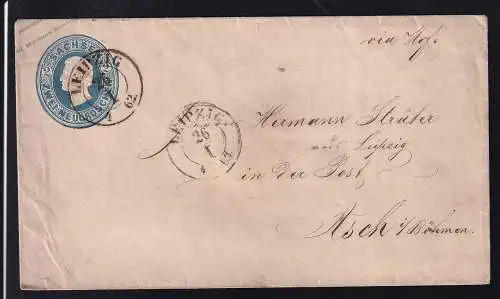 SACHSEN
ZWEI NEUGROSCHEN
LEIPZIG
62
via Hof.
LEIPZIG
26
I
Hermann Sträter
aus Leipzig
in der Post
Asch i/Böhmen.